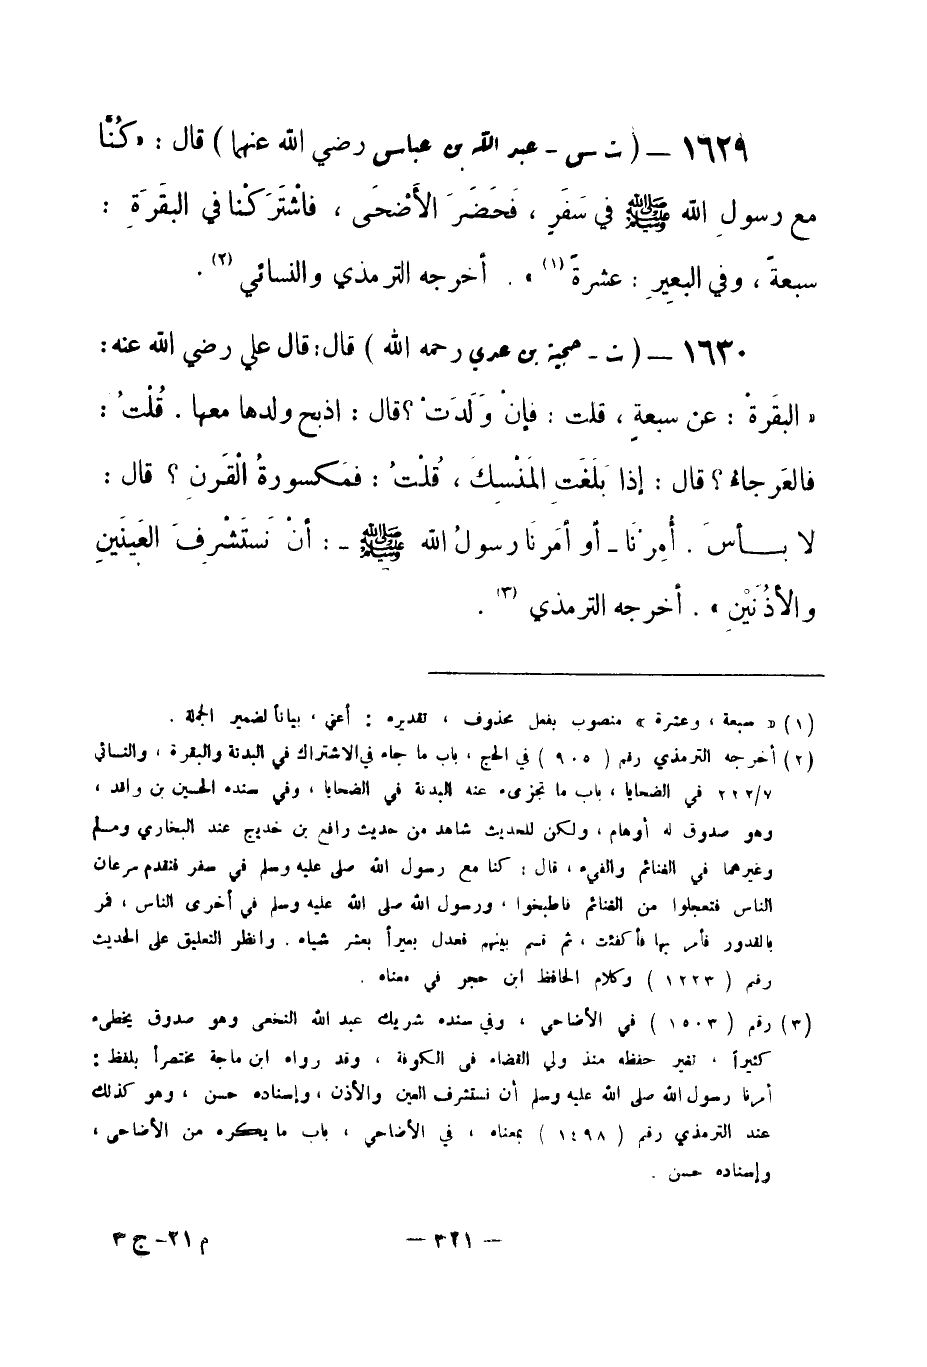 ١٦٢٩ — ( ت س - عبد الله بن عباس رضي الله عنهما ) قال : « كُنَّا
مع رسولِ الله ﷺ في سَفَرٍ ، فَحَضَرَ الأَضْحَى ، فاشْتَرَكْنا في البقَرَةِ :
سبعةً ، وفي البعيرِ : عشرةً (١) » . أخرجه الترمذي والنسائي (٢) .
١٦٣٠ — ( ت - حجية بن عدي رحمه الله ) قال : قال علي رضي الله عنه :
« البقَرةْ : عن سبعةٍ ، قلت : فإنْ وَلَدَتْ ؟ قال : اذبح ولدها معها . قُلْتُ :
فالعَرجاءُ ؟ قال : إذا بَلَغَتِ المَنْسِكَ ، قُلْتُ : فمَكسورةُ الْقَرنِ ؟ قال :
لا بــأسَ . أُمِرْنَا - أو أمَرنَا رسولُ الله ﷺ - : أنْ نَستَشْرِفَ العَينَينِ
والأذُنَيْنِ » . أخرجه الترمذي (٣) .
(١) « سبعة ، وعشرة » منصوب بفعل محذوف ، تقديره : أعني ، بياناً لضمير الجملة .
(٢) أخرجه الترمذي رقم ( ٩٠٥ ) في الحج ، باب ما جاء في الاشتراك في البدنة والبقرة ، والنسائي
٢٢٢/٧ في الضحايا ، باب ما تجزىء عنه البدنة في الضحايا ، وفي سنده الحسين بن واقد ،
وهو صدوق له أوهام ، ولكن للحديث شاهد من حديث رافع بن خديج عند البخاري ومسلم
وغيرهما في الغنائم والفيء ، قال : كنا مع رسول الله صلى الله عليه وسلم في سفر فتقدم سرعان
الناس فتعجلوا من الغنائم فاطبخوا ، ورسول الله صلى الله عليه وسلم في أخرى الناس ، فمر
بالقدور فأمر بها فأكفئت ، ثم قسم بينهم فعدل بعيراً بعشر شياه . وانظر التعليق على الحديث
رقم ( ١٢٢٣ ) وكلام الحافظ ابن حجر في معناه .
(٣) رقم ( ١٥٠٣ ) في الأضاحي ، وفي سنده شريك عبد الله النخعي وهو صدوق يخطىء
كثيراً ، تغير حفظه منذ ولي القضاء في الكوفة ، وقد رواه ابن ماجة مختصراً بلفظ :
أمرنا رسول الله صلى الله عليه وسلم أن نستشرف العين والأذن ، وإسناده حسن ، وهو كذلك
عند الترمذي رقم ( ١٤٩٨ ) بمعناه ، في الأضاحي ، باب ما يكره من الأضاحى ،
وإسناده حسن .
— ٣٢١ —
م ٢١ - ج ٣